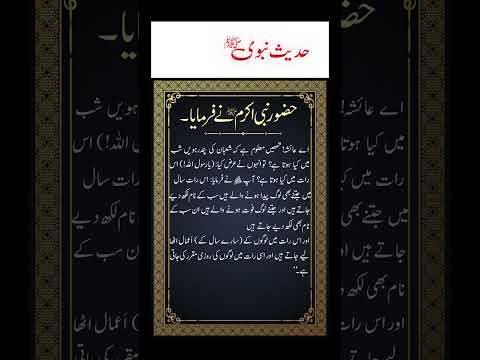 حدیث نبوی ﷺ
حضور نبی اکرم ﷺ نے فرمایا۔
اے عائشہ! تمہیں معلوم ہے کہ شعبان کی پندرہویں شب
میں کیا ہوتا ہے؟ تو انہوں نے عرض کیا: (یا رسول اللہ!) اس
رات میں کیا ہوتا ہے؟ آپ ﷺ نے فرمایا: اس رات سال
میں جتنے بھی لوگ پیدا ہونے والے ہیں سب کے نام لکھ دیے
جاتے ہیں اور جتنے لوگ فوت ہونے والے ہیں ان سب کے
نام بھی لکھ دیے جاتے ہیں
اور اس رات میں لوگوں کے (سارے سال کے) اَعمال اٹھا
لیے جاتے ہیں اور اسی رات میں لوگوں کی روزی مقرر کی جاتی
ہے۔''